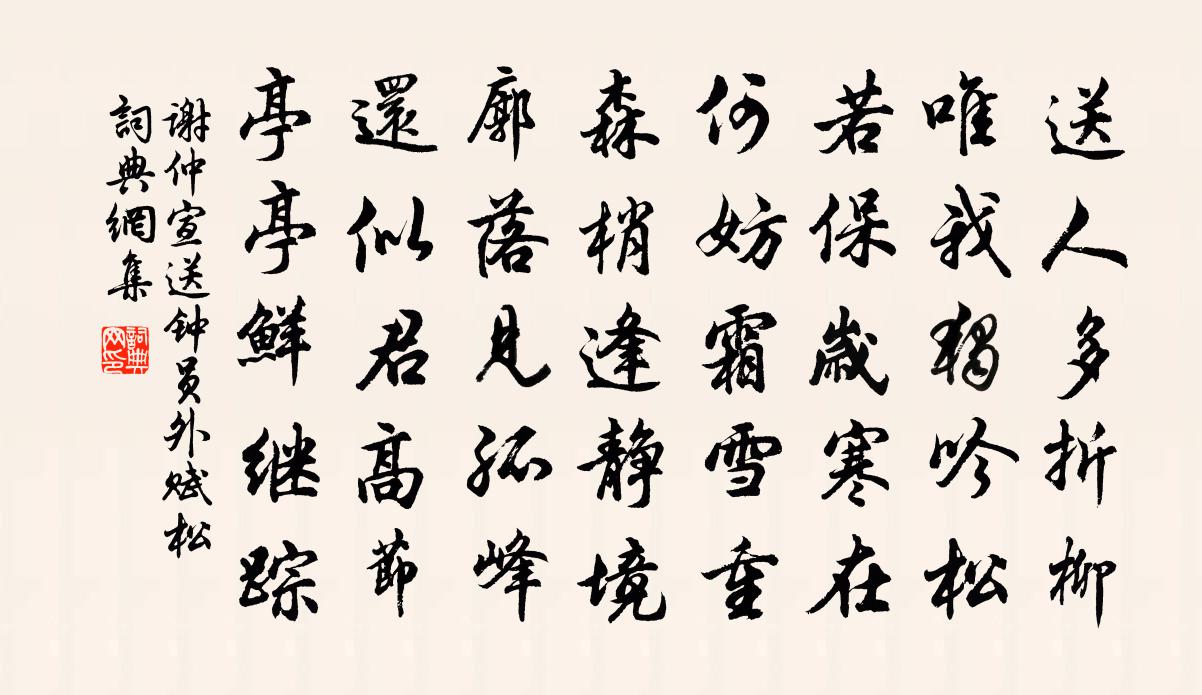 送人多折柳
唯我独吟松
若保歲寒在
何妨霜雪重
森梢逢静境
廓落見孤峰
還似君高節
亭亭鮮继踪
谢仲宣送钟员外赋松
詞典網集
詞典网印